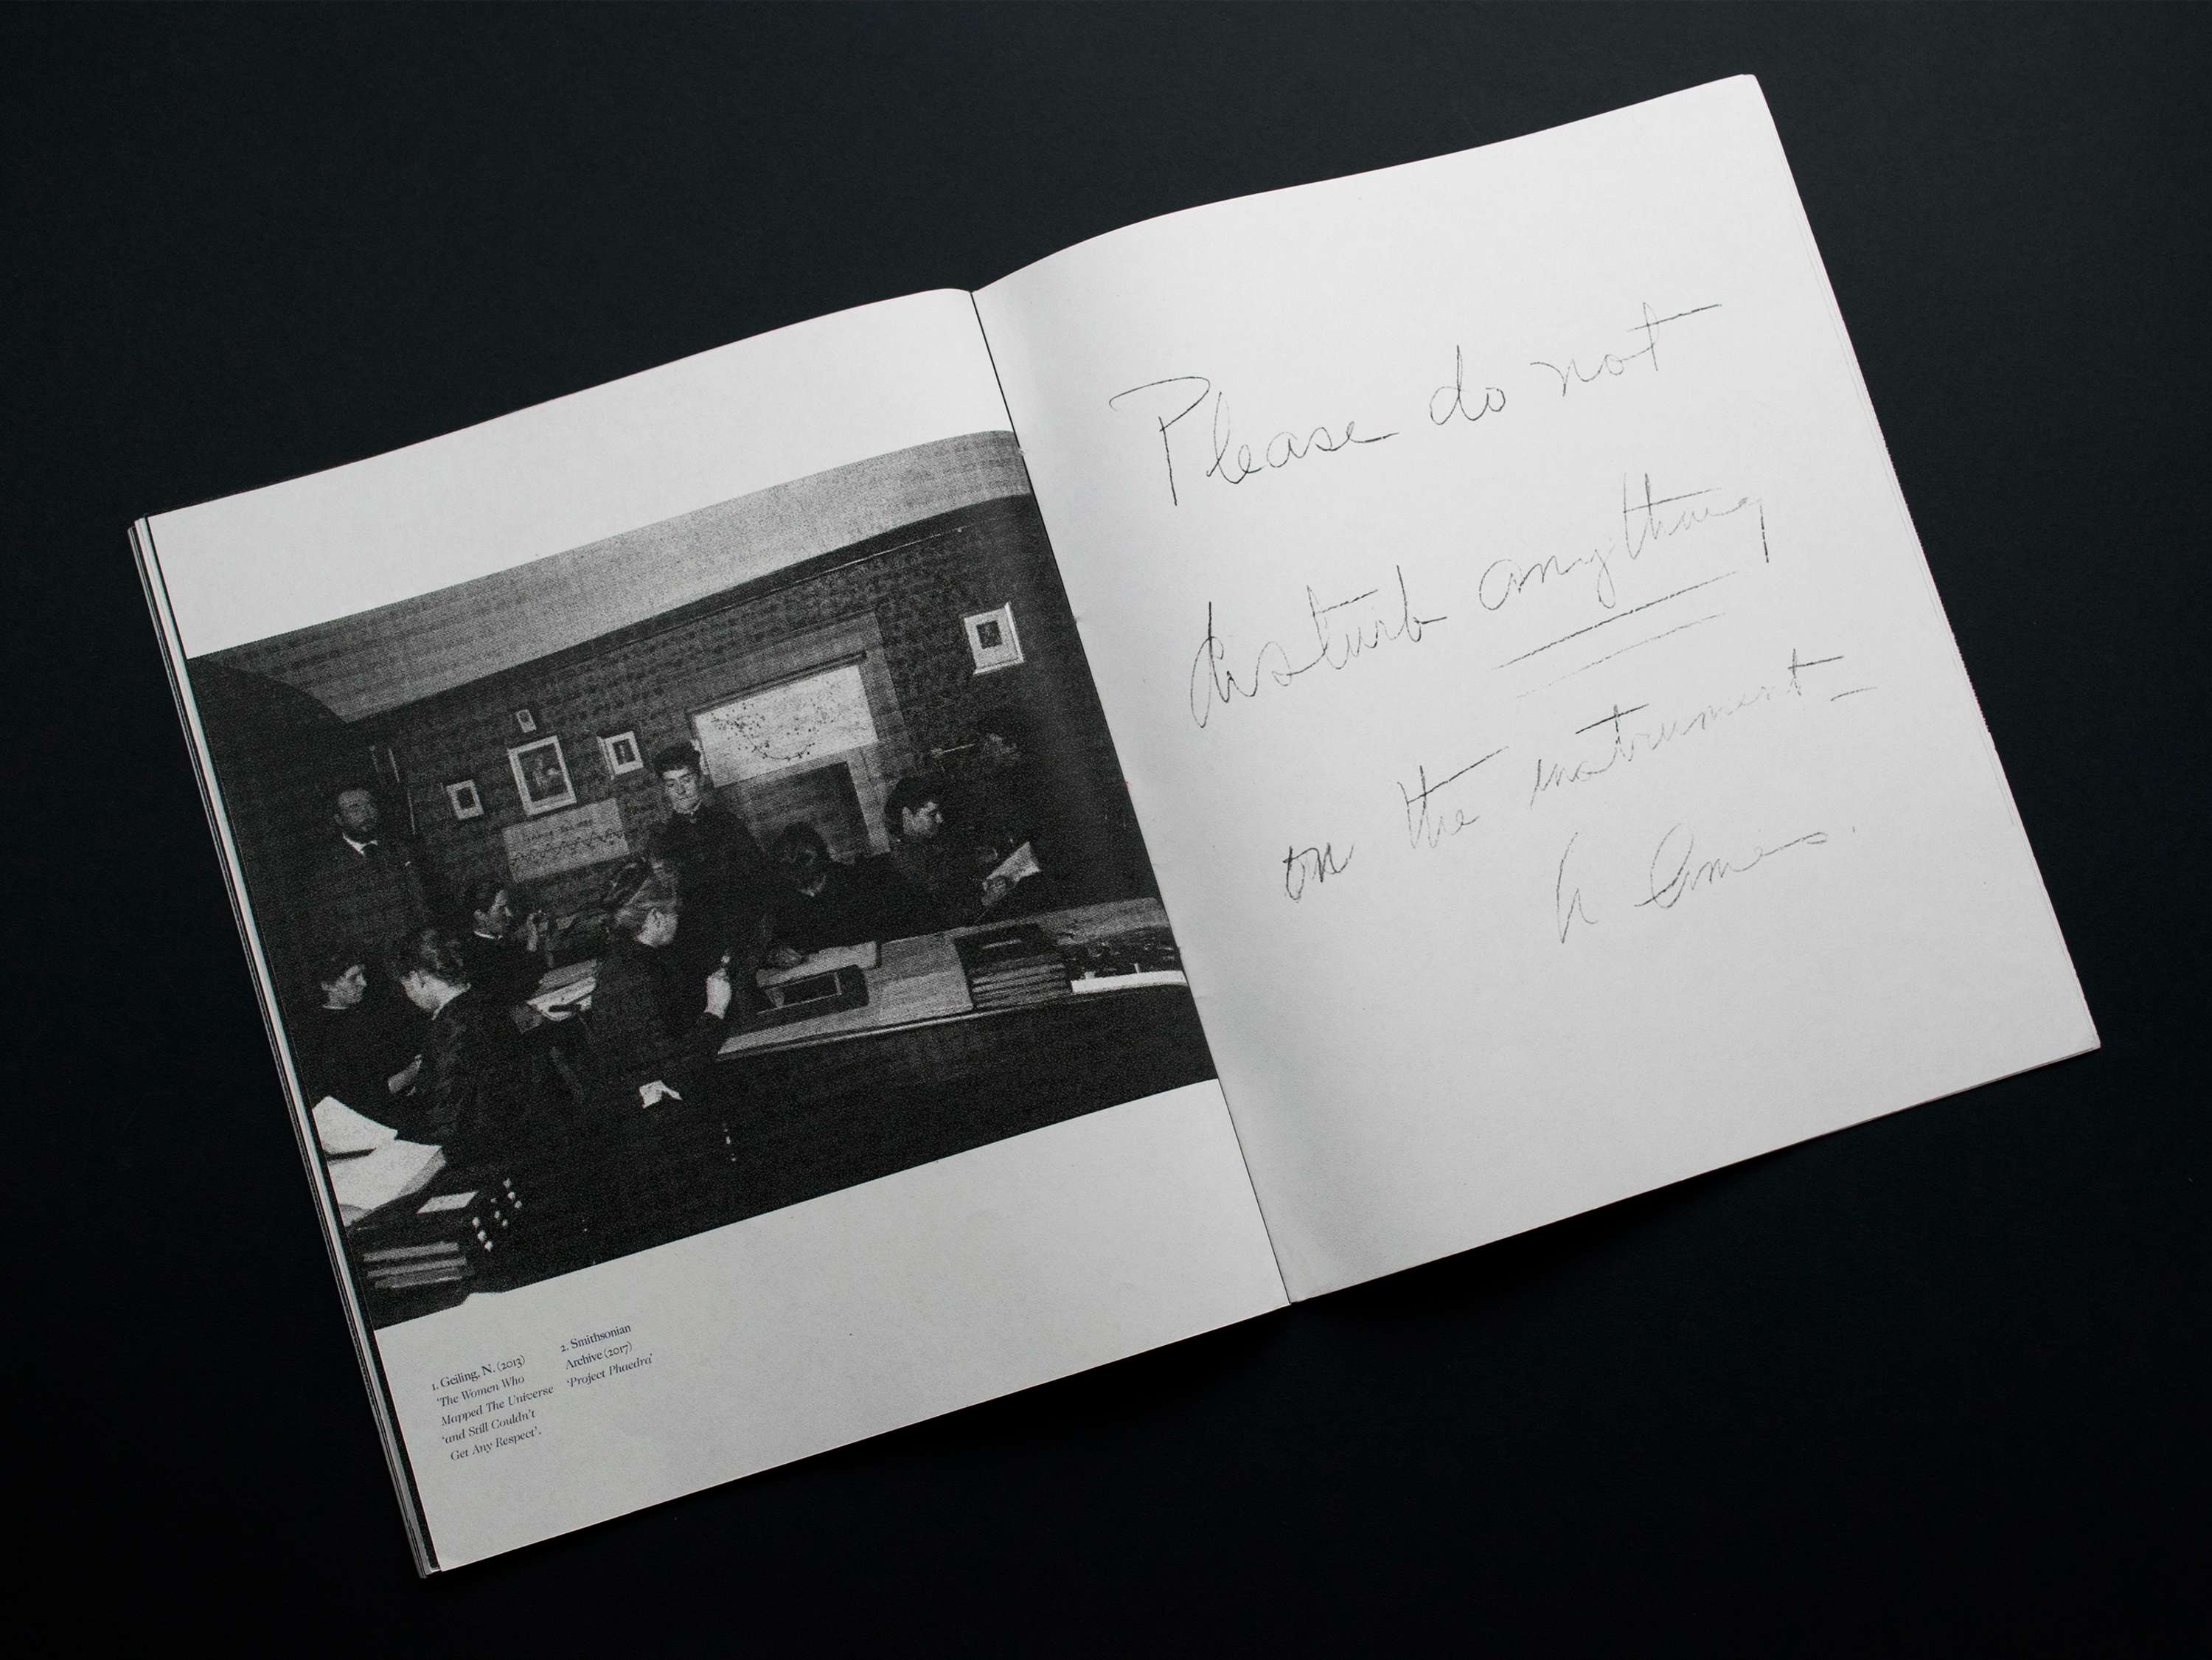 1. Geiling, N. (2013)
'The Women Who
Mapped The Universe
'and Still Couldn't
Get Any Respect'.
2. Smithsonian
Archive (2017)
'Project Phaedra'
Please do not
disturb anything
on the instrument –
A Ames.